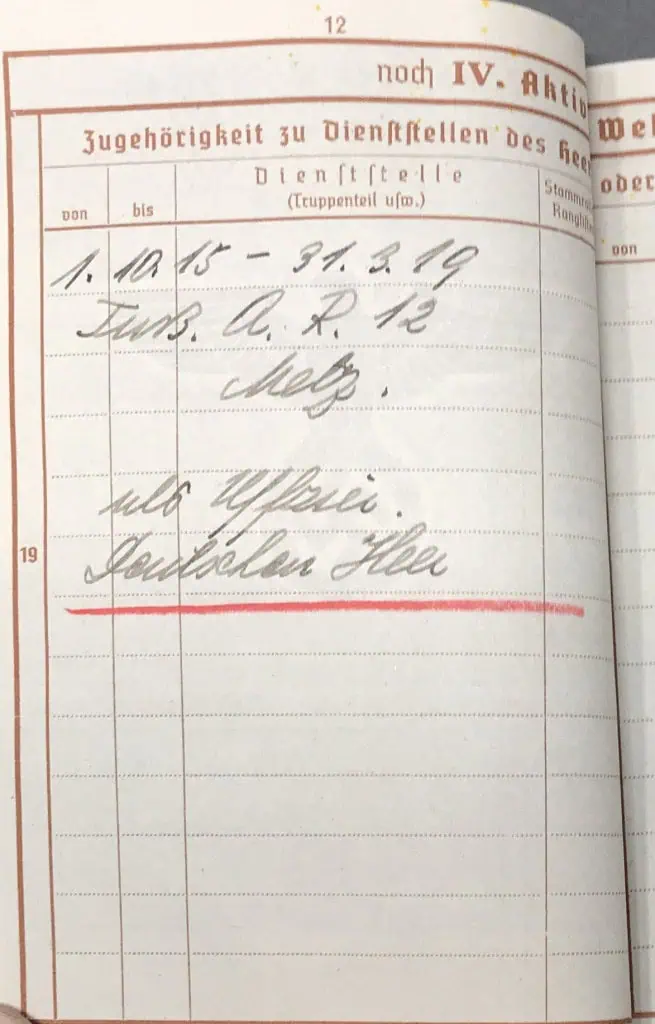 12
noch IV. Aktiv
Zugehörigkeit zu Dienststellen des Hee
von
bis
Dienststelle
(Truppenteil usw.)
Stammro
Ranglis
1. 10. 15 - 31. 3. 19
Fuß. A. R. 12
Metz.
als
Deutschen Heer
19
Weh
oder
von